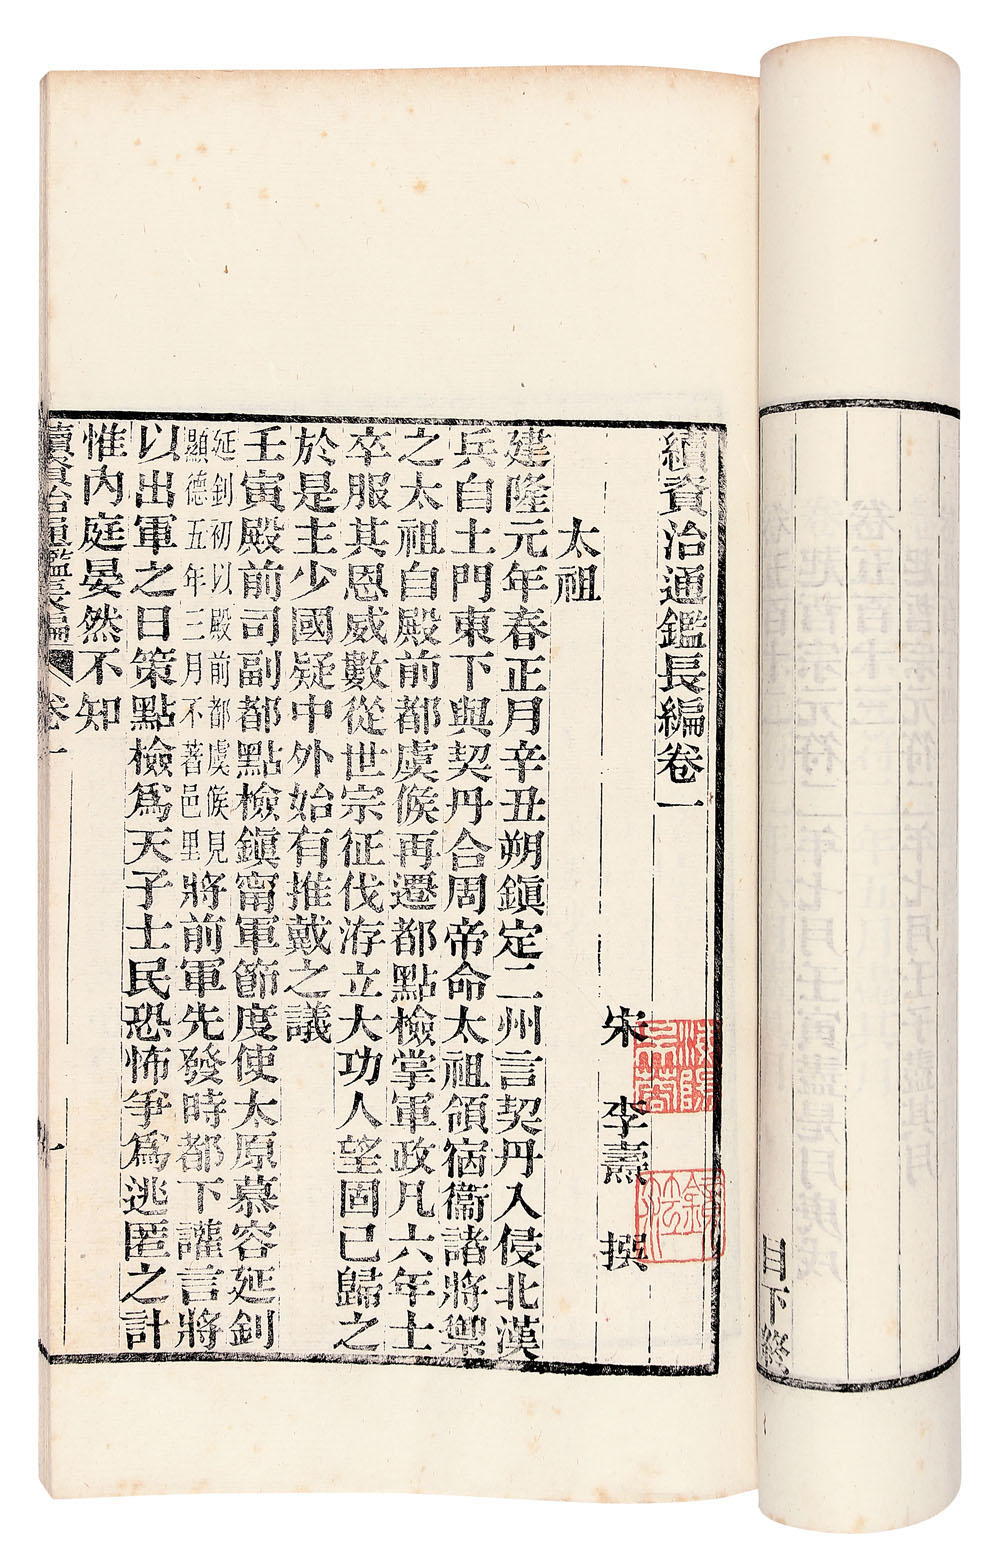 續資治通鑑長編卷一
宋 李燾 撰
太祖
建隆元年春正月辛丑朔鎭定二州言契丹入侵北漢
兵自土門東下與契丹合周帝命太祖領宿衞諸將禦
之太祖自殿前都虞候再遷都點檢掌軍政凡六年士
卒服其恩威數從世宗征伐洊立大功人望固已歸之
於是主少國疑中外始有推戴之議
壬寅殿前司副都點檢鎭甯軍節度使太原慕容延釗
延釗初以殿前都虞候見
顯德五年三月不著邑里
將前軍先發時都下讙言將
以出軍之日策點檢爲天子士民恐怖爭爲逃匿之計
惟内庭晏然不知
續資治通鑑長編 卷一
一
目下